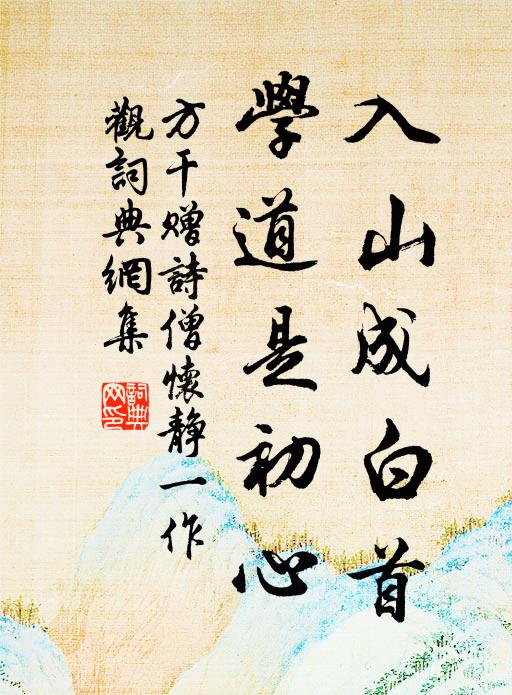 入山成白首
學道是初心
方干贈詩僧懷静一作
觀詞典網集
詞典
网印